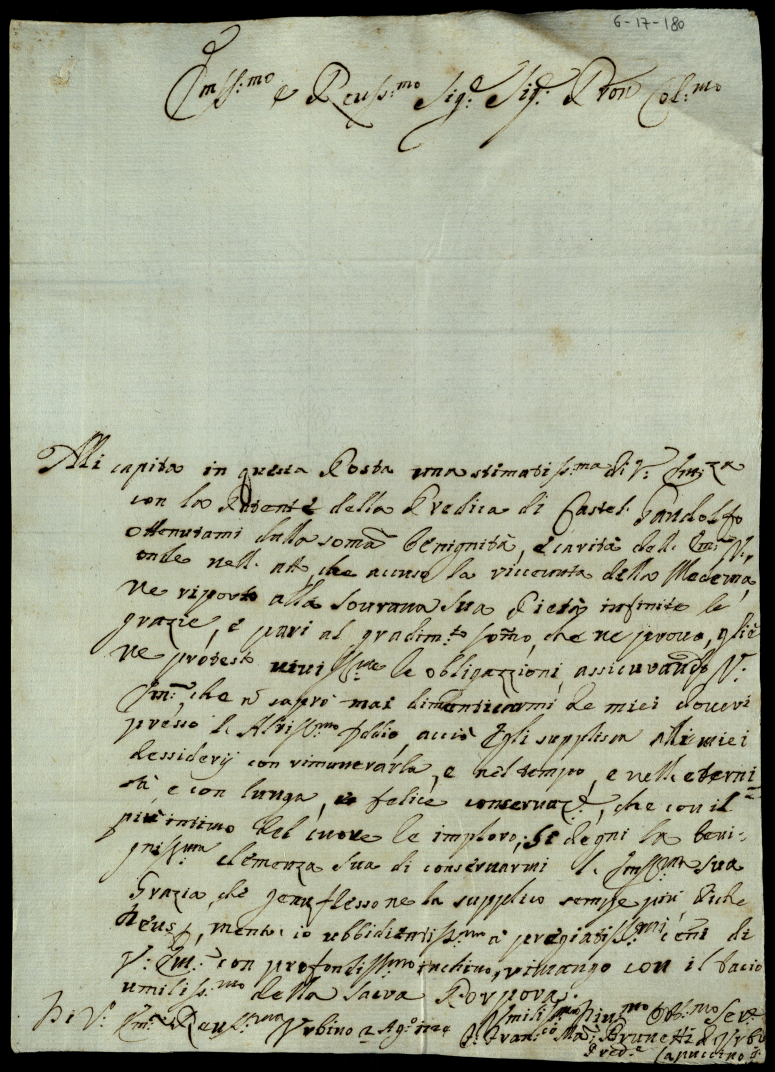 6-17-180
Emss:mo e Reuss:mo Sig:e Sig:e Pron Col:mo
Mi capita in questa Posta una stimatiss:ma di V: Em:za
con la Patente della Predica di Castel: Gandolfo
ottenutami dalla soma benignità, e carità dell: Em: V:,
onde nell: att, che accuso la riceuuta della Medema,
ne riporto alla sourana sua Pietà infinite le
grazie, e pari al gradim:to somo, che ne prouo, gliè
ne protesto uiuiss:me le obligazzioni, assicurando V:
Em:, che ñ saprò mai dimenticarmi de miei doueri
presso l: Altiss:mo Iddio acciò Egli supplisca alli miei
dessiderij con rimunerarla, e nel tempo, e nell: eterni
tà, e con lunga, e felice conseruaz:, che con il
più intimo del cuore le imploro; Si degni la beni-
gniss:ma clemenza sua di conseruarmi l: Emss:ma sua
Grazia, che genuflesso ne la supplico sempre più
mentr: io ubbidientiss:mo a pregiatiss:mi ceñi di
V: Em: con profondiss:mo inchino, rimango con il bacio
umiliss:mo della sacra Porpora.
Di V: Em: Reuss:ma Urbino 2 Ag:o
Umiliss:mo Diu:mo Obb:mo Ser:e
F: Fran:co Ma: Brunetti d Urb
Pred:e Capuccino